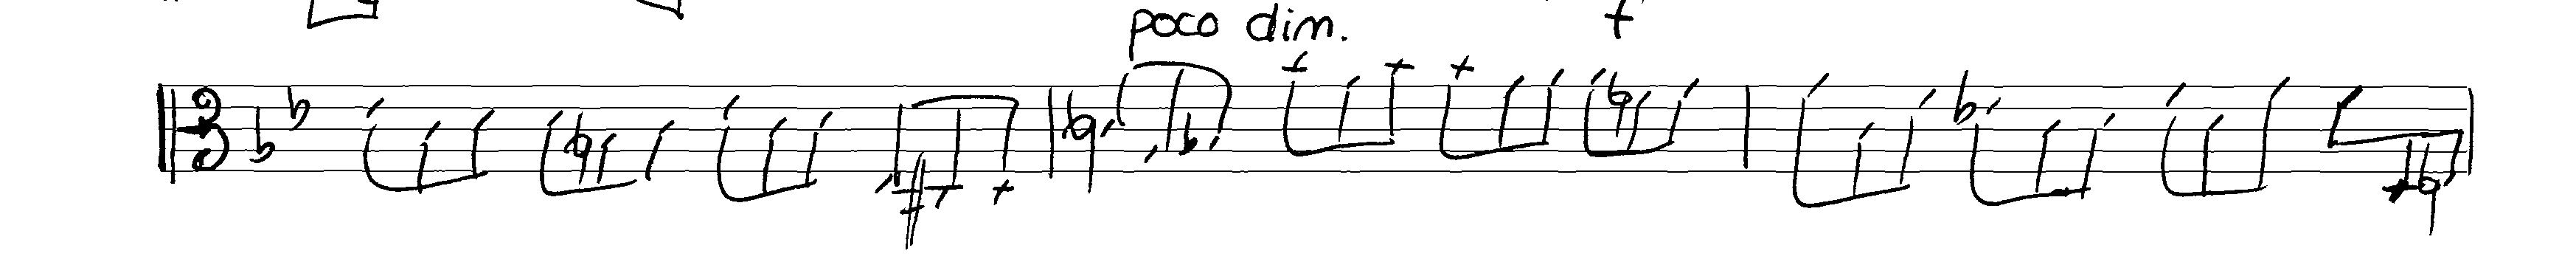 poco dim. f